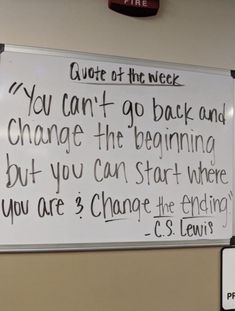 FIRE
Quote of the week
"You can't go back and
change the beginning
but you can start where
you are & Change the ending"
-C.S. Lewis